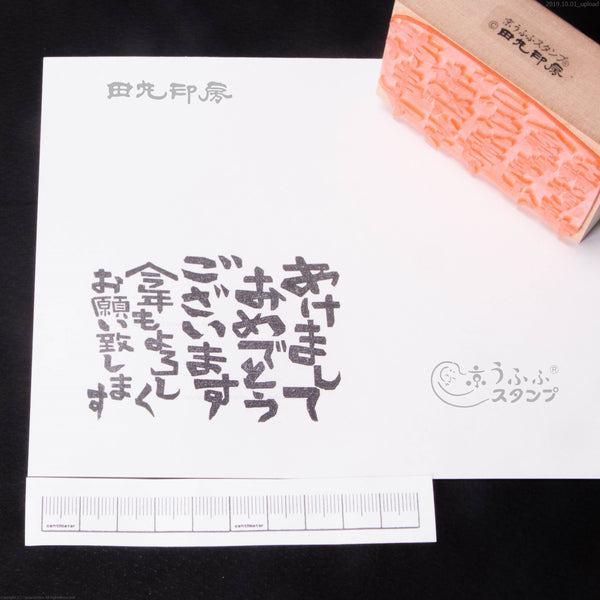 2019.10.01_upload
京うふふスタンプ®
©田丸印房
田丸印房
あけまして
おめでとう
ございます
今年もよろしく
お願い致します
京うふふ®
スタンプ
centimeter
centimeter